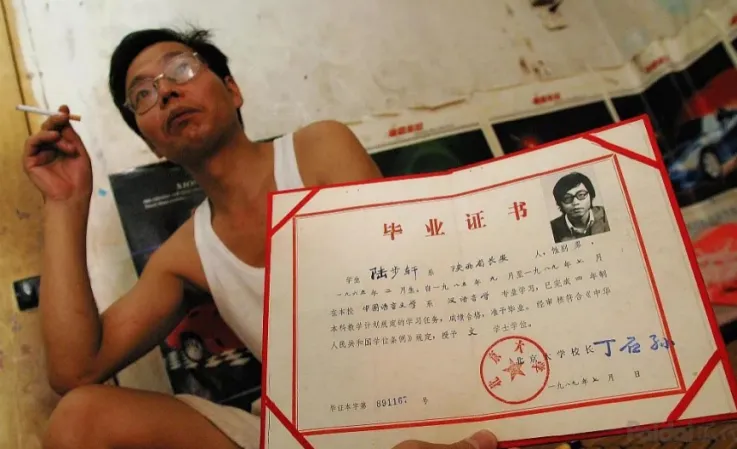 毕业证书
学生 陆步轩 系 陕西省长安 人，性别 男，
一九六五年 月生，自一九八五年 九 月至一九八九年 七 月
在本校 中国语言文学 系 汉语言学 专业学习，已完成 四 年制
本科教学计划规定的学习任务，成绩合格，准予毕业。经审核符合《中华
人民共和国学位条例》规定，授予 文 学士学位。
北京大学
北京大学校长 丁石孙
一九八九年七月 日
毕证本字第 891167 号